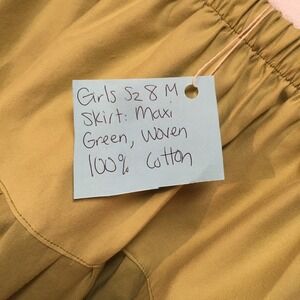 Girls Sz 8 M
Skirt: Maxi
Green, Woven
100% Cotton